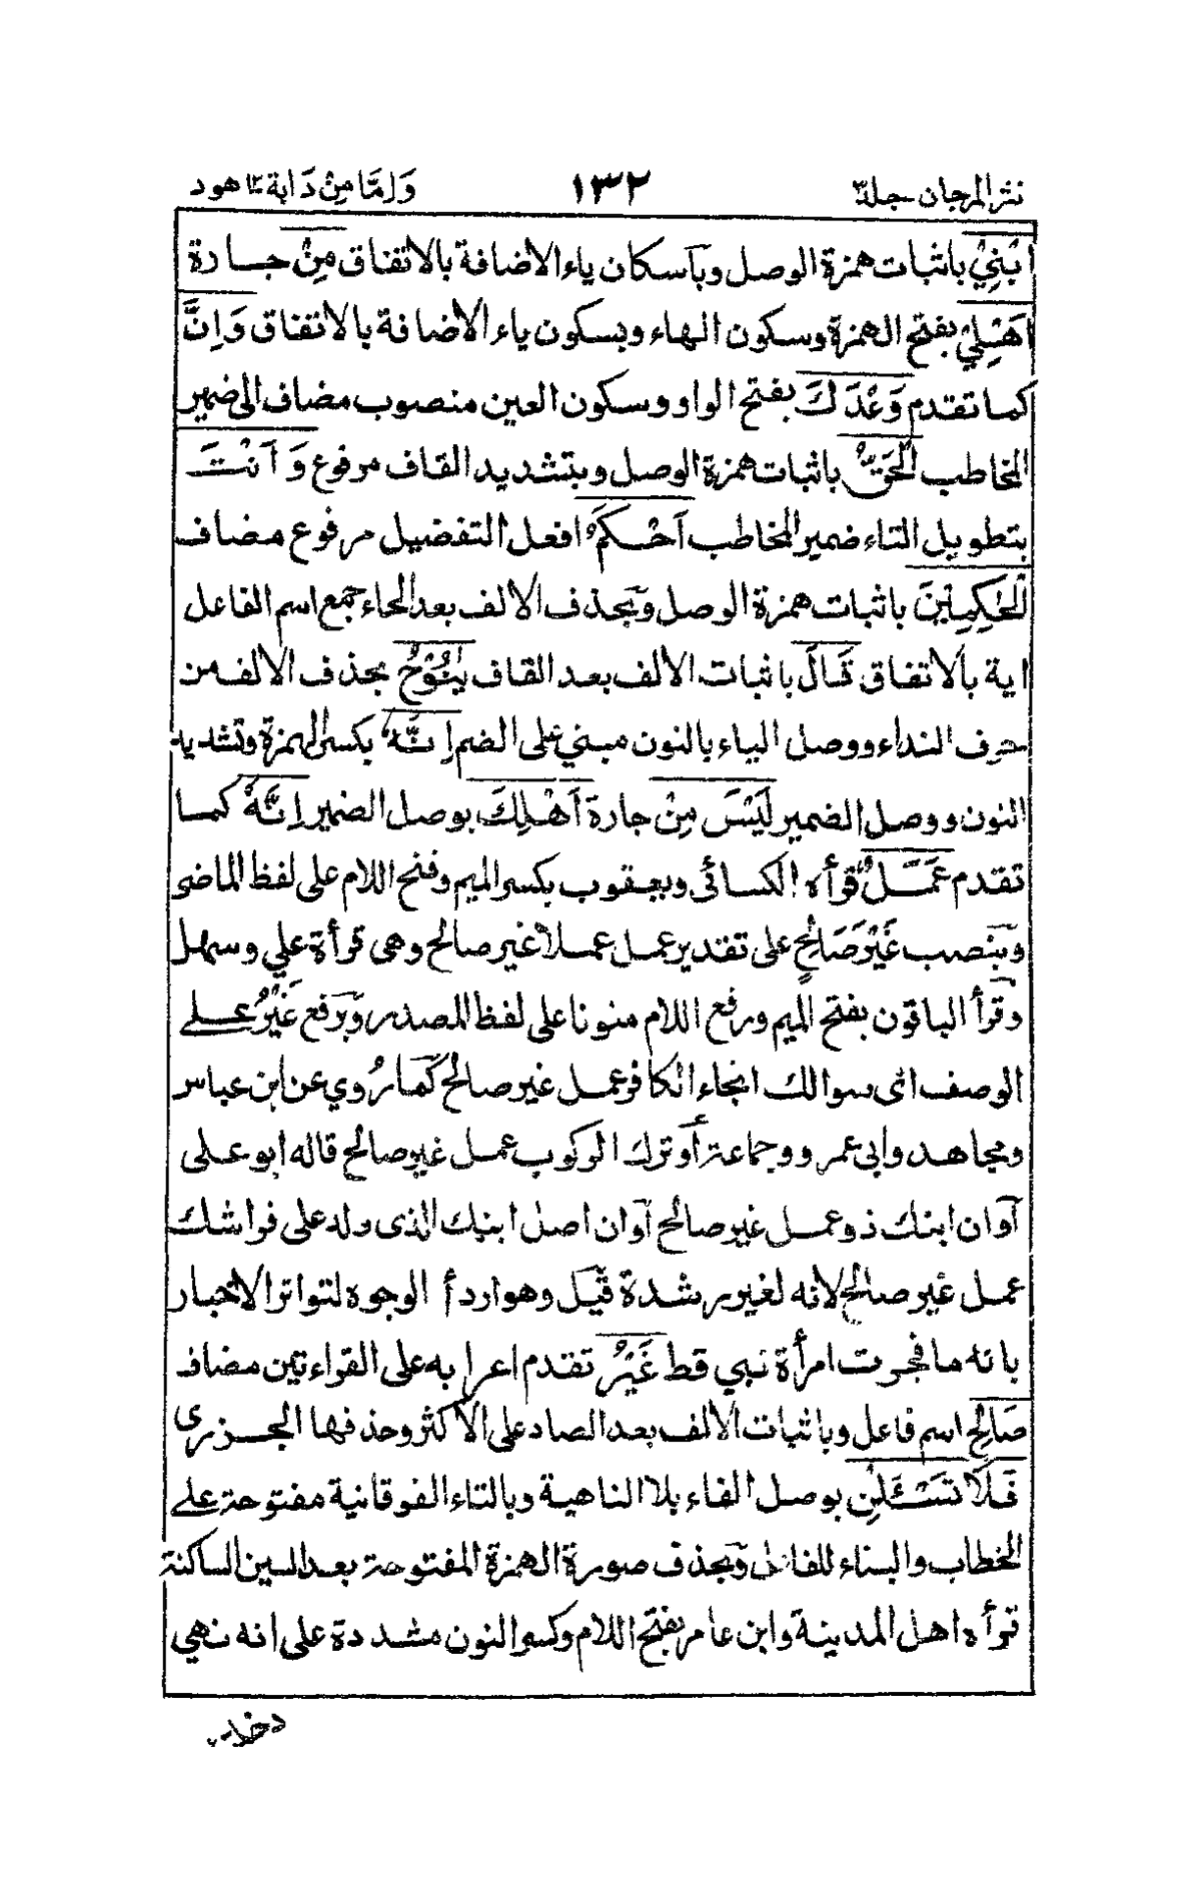 نثر المرجان جلد٣ ١٣٢ وَمَا مِنْ دَابة ١٢ هود
ابْنِيْ باثبات همزة الوصل وبآسكان ياء الاضافة بالاتفاق مِنْ جارة
اَهْلِيْ بفتح الهمزة وسكون الهاء وبسكون ياء الاضافة بالاتفاق وَاِنَّ
كما تقدم وَعْدَكَ بفتح الواو وسكون العين منصوب مضاف الى ضمير
المخاطب الْحَقُّ باثبات همزة الوصل وبتشديد القاف مرفوع وَ اَنْتَ
بتطويل التاء ضمير المخاطب اَحْكَمُ افعل التفضيل مرفوع مضاف
الْحٰكِمِيْنَ باثبات همزة الوصل وبحذف الالف بعد الحاء جمع اسم الفاعل
اية بالاتفاق قَالَ باثبات الالف بعد القاف يٰنُوْحُ بحذف الالف من
حرف النداء ووصل الياء بالنون مبني على الضم اِنَّهٗ بكسر الهمزة وتشديد
النون ووصل الضمير لَيْسَ مِنْ جارة اَهْلِكَ بوصل الضمير اِنَّهٗ كما
تقدم عَمَلٌ قرأه الكسائى ويعقوب بكسر الميم وفتح اللام على لفظ الماضى
وبنصب غَيْرَ صَالِحٍ على تقدير عمل عملا غير صالح وهى قرأة علي وسهل
وقرأ الباقون بفتح الميم ورفع اللام منونا على لفظ المصدر وبرفع غَيْرُ على
الوصف اى سوالك انجاء الكافر عمل غير صالح كما رُوي عن ابن عباس
ومجاهد وابى عمرو وجماعة أو ترك الركوب عمل غير صالح قاله ابو على
آوان ابنك ذو عمل غير صالح آوان اصل ابنك الذى ولد على فراشك
عمل غير صالح لانه لغير رشدة قيل وهو اردأ الوجوه لتواتر الاخبار
بانه ما فجرت امرأة نبي قط غَيْرُ تقدم اعرابه على القراءتين مضاف
صَالِحٍ اسم فاعل وباثبات الالف بعد الصاد على الاكثر وحذفها الجزرى
فَلَا تَسْـَٔلْنِ بوصل الفاء بلا الناهية وبالتاء الفوقانية مفتوحة على
الخطاب والبناء للفاعل وبحذف صورة الهمزة المفتوحة بعد السين الساكنة
قرأه اهل المدينة وابن عامر بفتح اللام وكسر النون مشددة على انه نهي